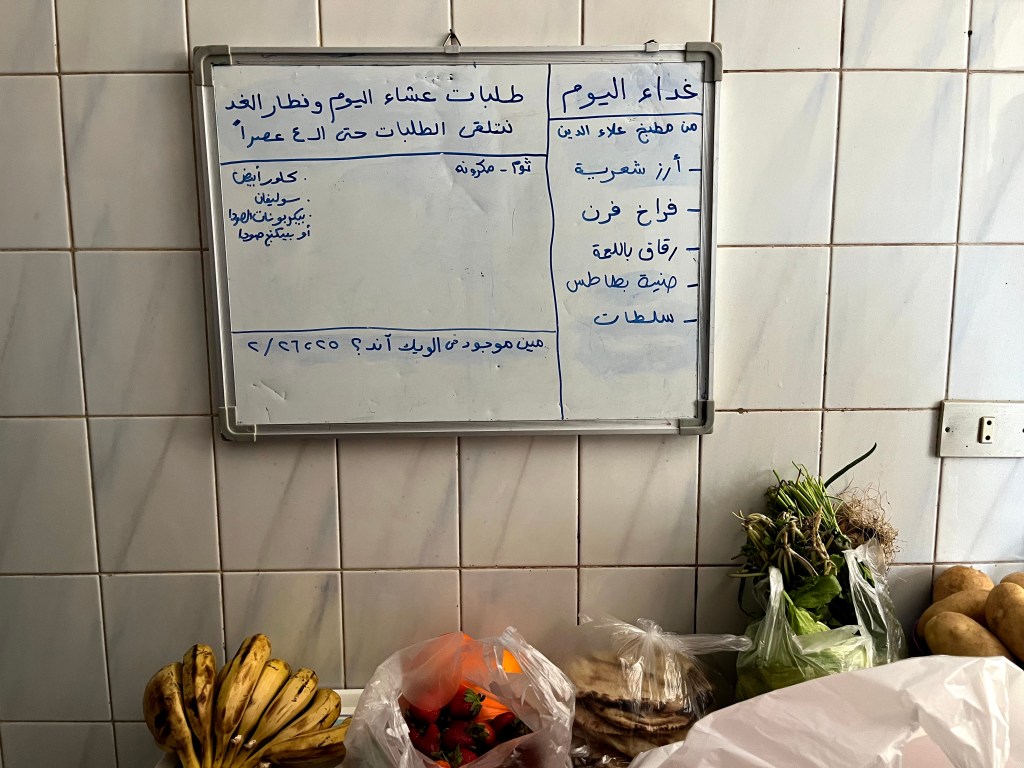 غداء اليوم
من مطبخ علاء الدين
- أرز شعرية
- فراخ فرن
- رقاق باللحمة
- صنية بطاطس
- سلطات
طلبات عشاء اليوم وفطار الغد
نتلقى الطلبات حتى الـ ٤ عصراً
ثوم - مكرونه
. كلور أبيض
. سوليفان
. بيكربونات الصودا
أو بيكنج صودا
مين موجود فى الويك آند؟ ٢٥، ٢/٢٦